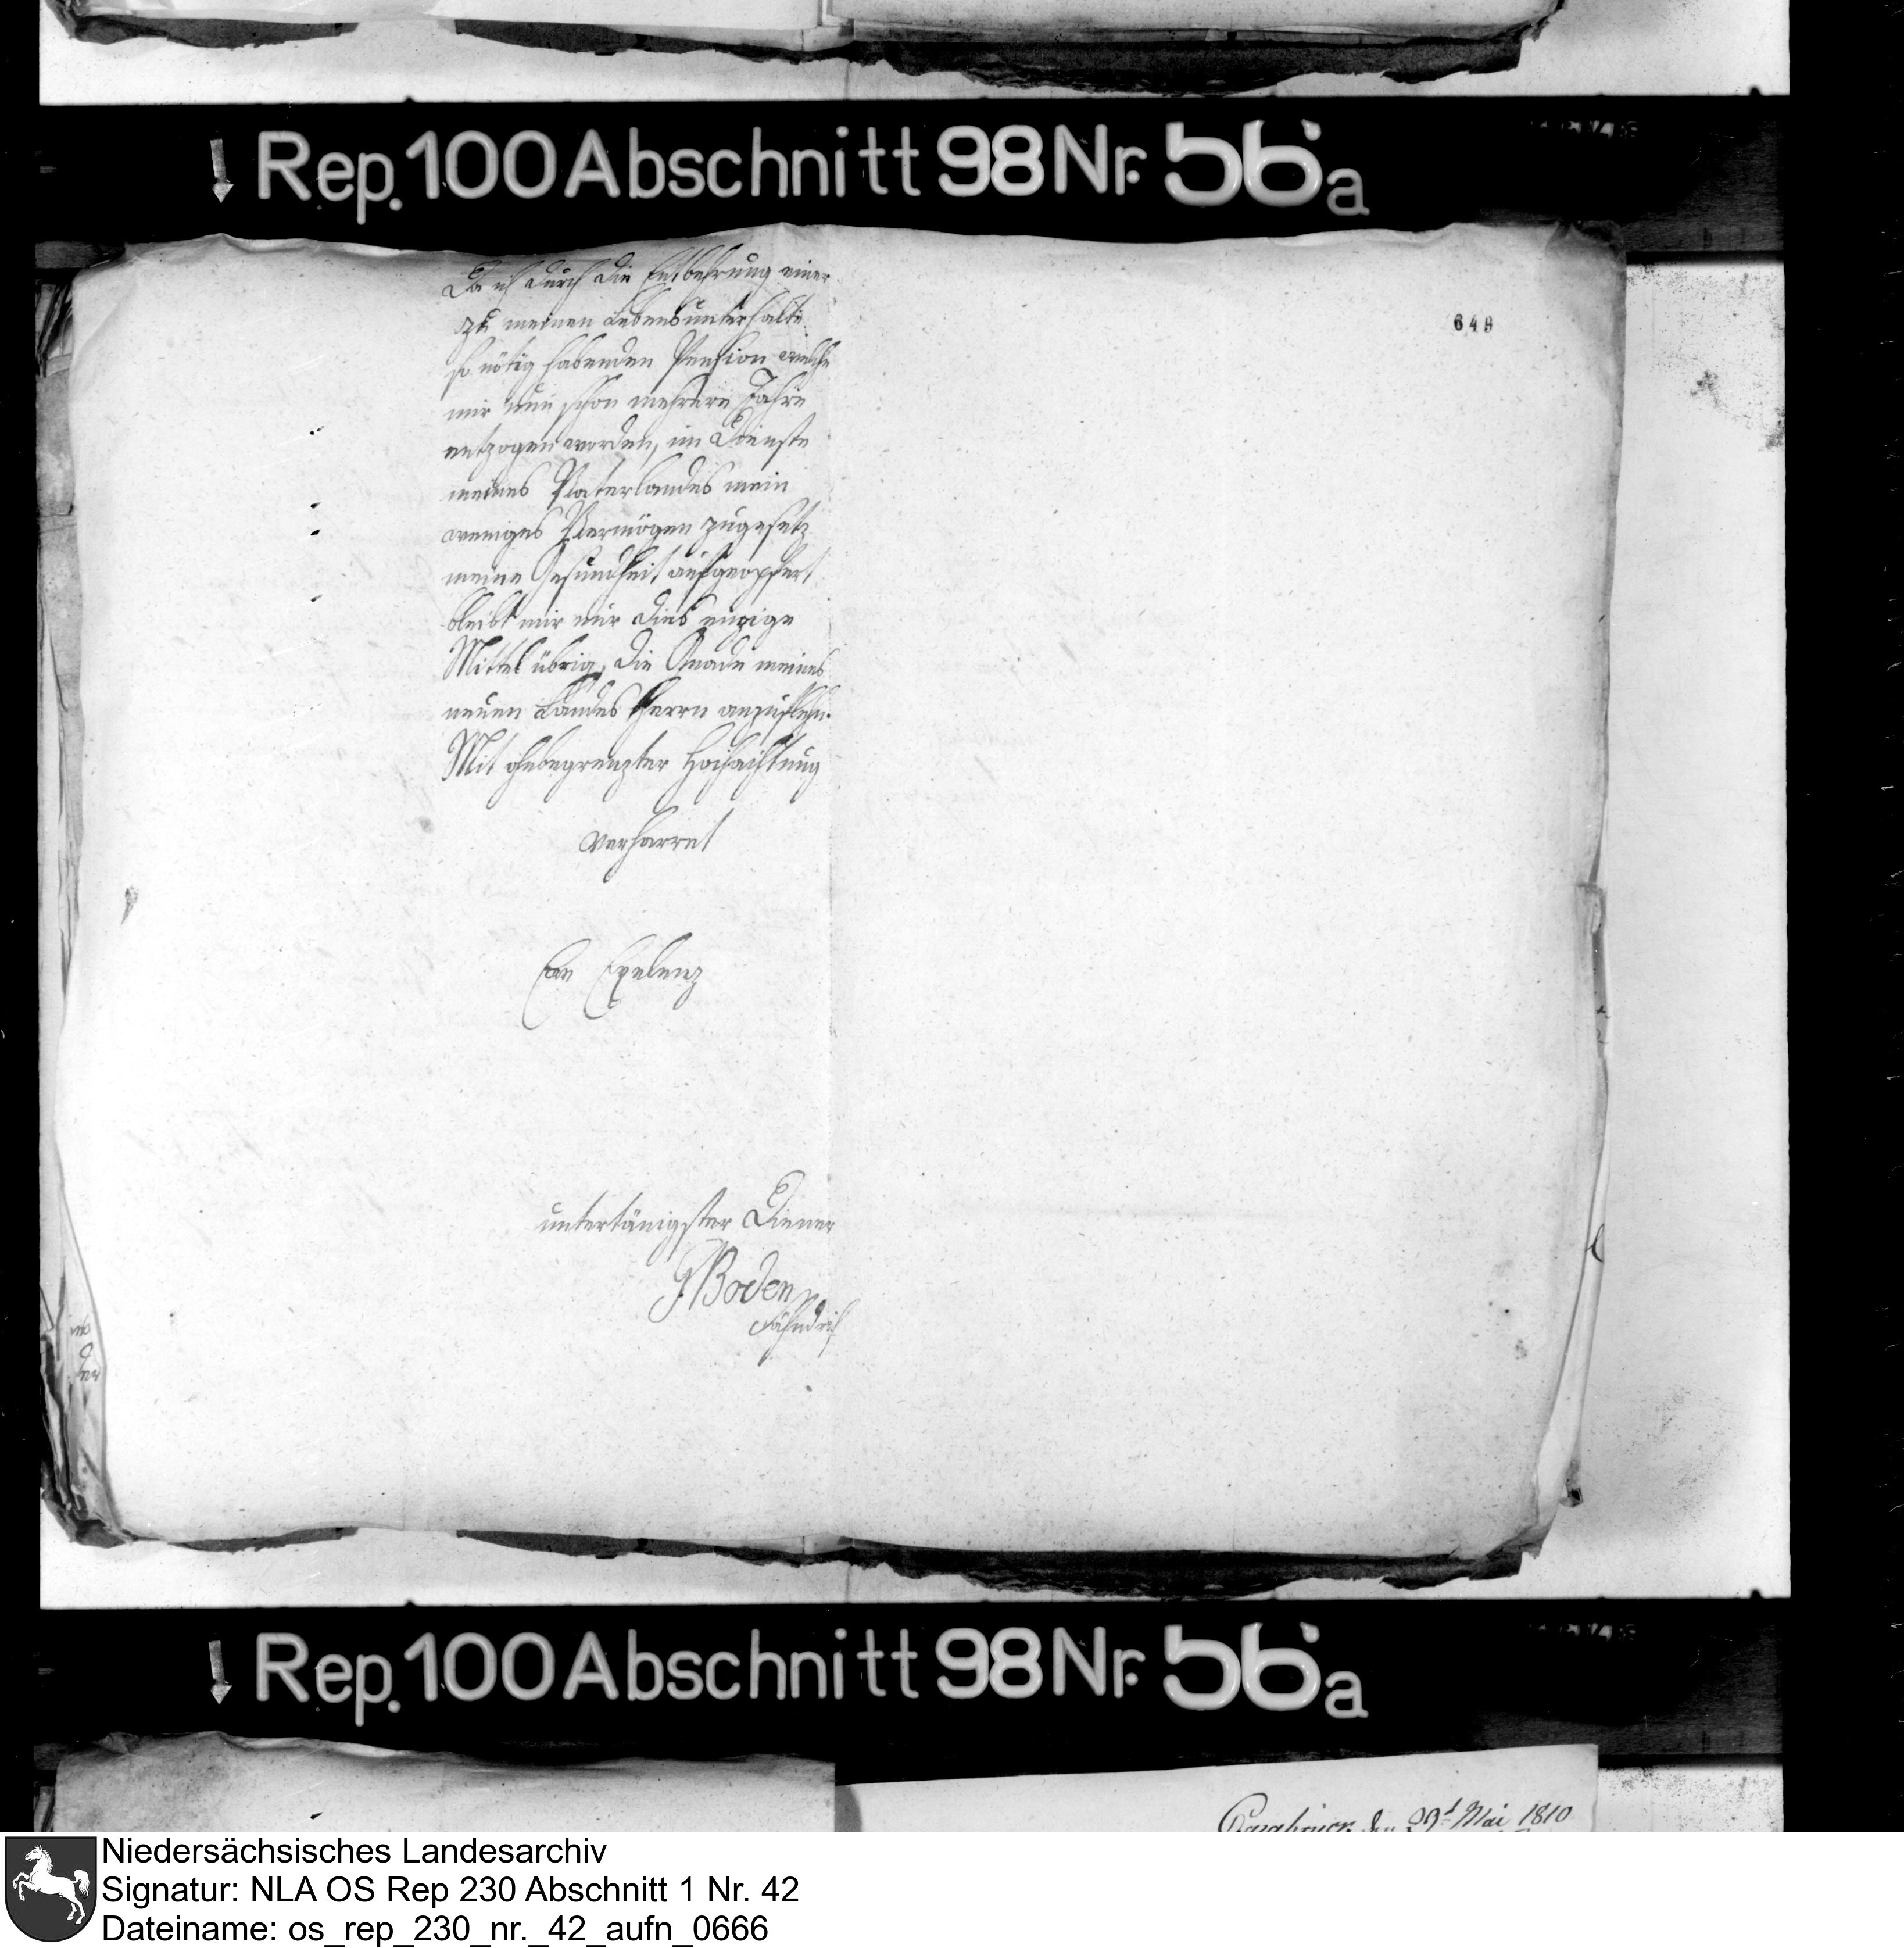 Rep. 100 Abschnitt 98 Nr. 56a
Da ich durch die Entbehrung einer
zu meinen Lebensunterhalte
so nötig habenden Pension welche
mir nun schon mehrere Jahre
entzogen worden, im Dienste
meines Vaterlandes mein
weniges Vermögen zugesetz
meine Gesundheit aufgeopfert
bleibt mir nur dies einzige
Mittel übrig, die Gnade meines
neuen Landes Herrn anzuflehn.
Mit ohnbegrenzter Hochachtung
verharret
Ew Exelenz
untertänigster Diener
Boden
Fähndrich
649
Rep. 100 Abschnitt 98 Nr. 56a
den 29t Mai 1810
Niedersächsisches Landesarchiv
Signatur: NLA OS Rep 230 Abschnitt 1 Nr. 42
Dateiname: os_rep_230_nr._42_aufn_0666